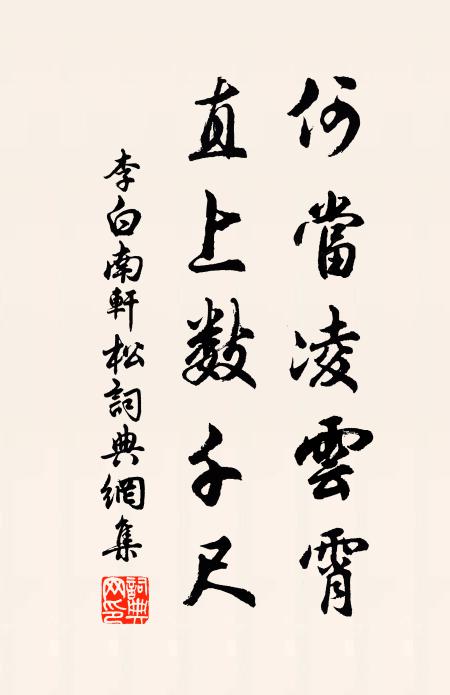 何當凌雲霄
直上數千尺
李白南軒松詞典網集
詞典網印